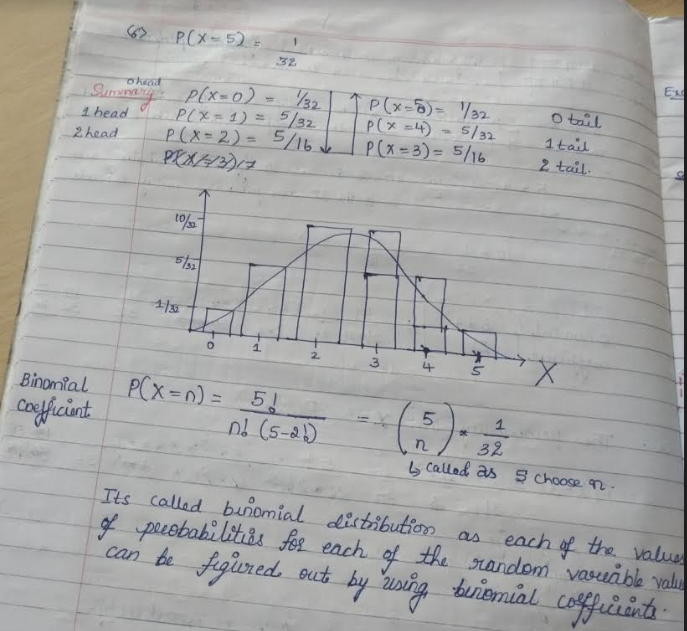 (6) P(X=5) = 1/32
Summary
0 head P(X=0) = 1/32 P(X=5) = 1/32 0 tail
1 head P(X=1) = 5/32 P(X=4) = 5/32 1 tail
2 head P(X=2) = 5/16 P(X=3) = 5/16 2 tail.
P(X=3)
10/32
5/32
1/32
0 1 2 3 4 5 X
Binomial coefficient P(X=n) = 5! / n! (5-2!) = (5 n) * 1/32
↳ called as 5 choose n.
Its called binomial distribution as each of the values
of probabilities for each of the random variable
can be figured out by using binomial coefficients.